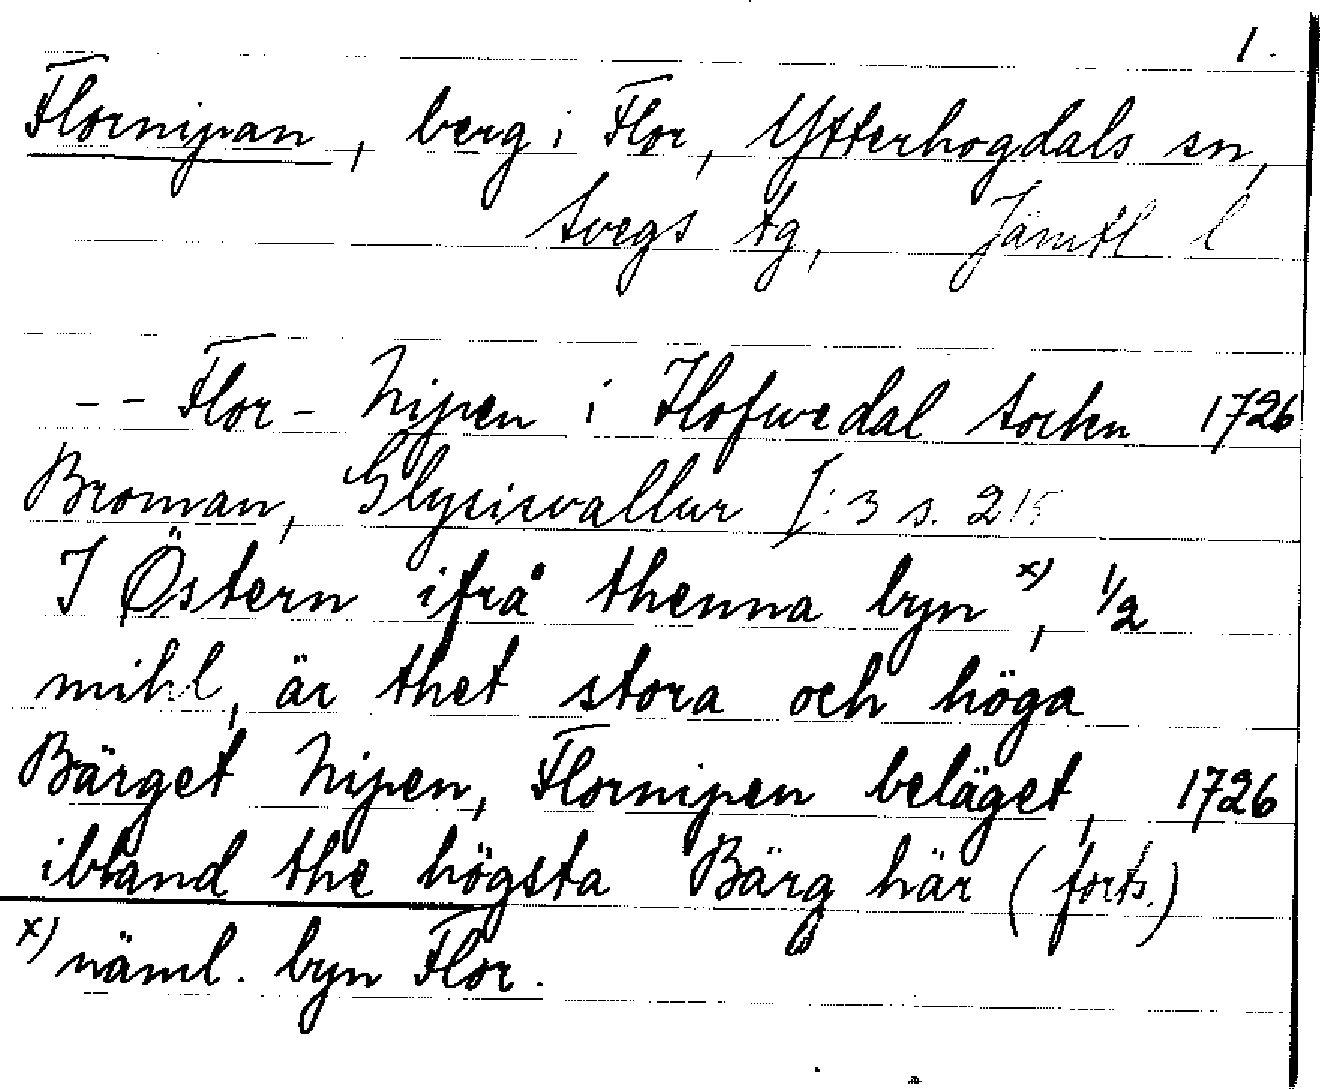 1.
Flornipan, berg i Flor, Ytterhogdals sn,
Svegs tg, Jämtl l
-- Flor-Nipen i Hofwedal Socken 1726
Broman, Glysisvallur I: 3 s. 215
I Östern ifrå thenna byn x), 1/2
mihl, är thet stora och höga
Bärget Nipen, Flornipen beläget, 1726
ibland the högsta Bärg här (forts.)
x) näml. byn Flor.